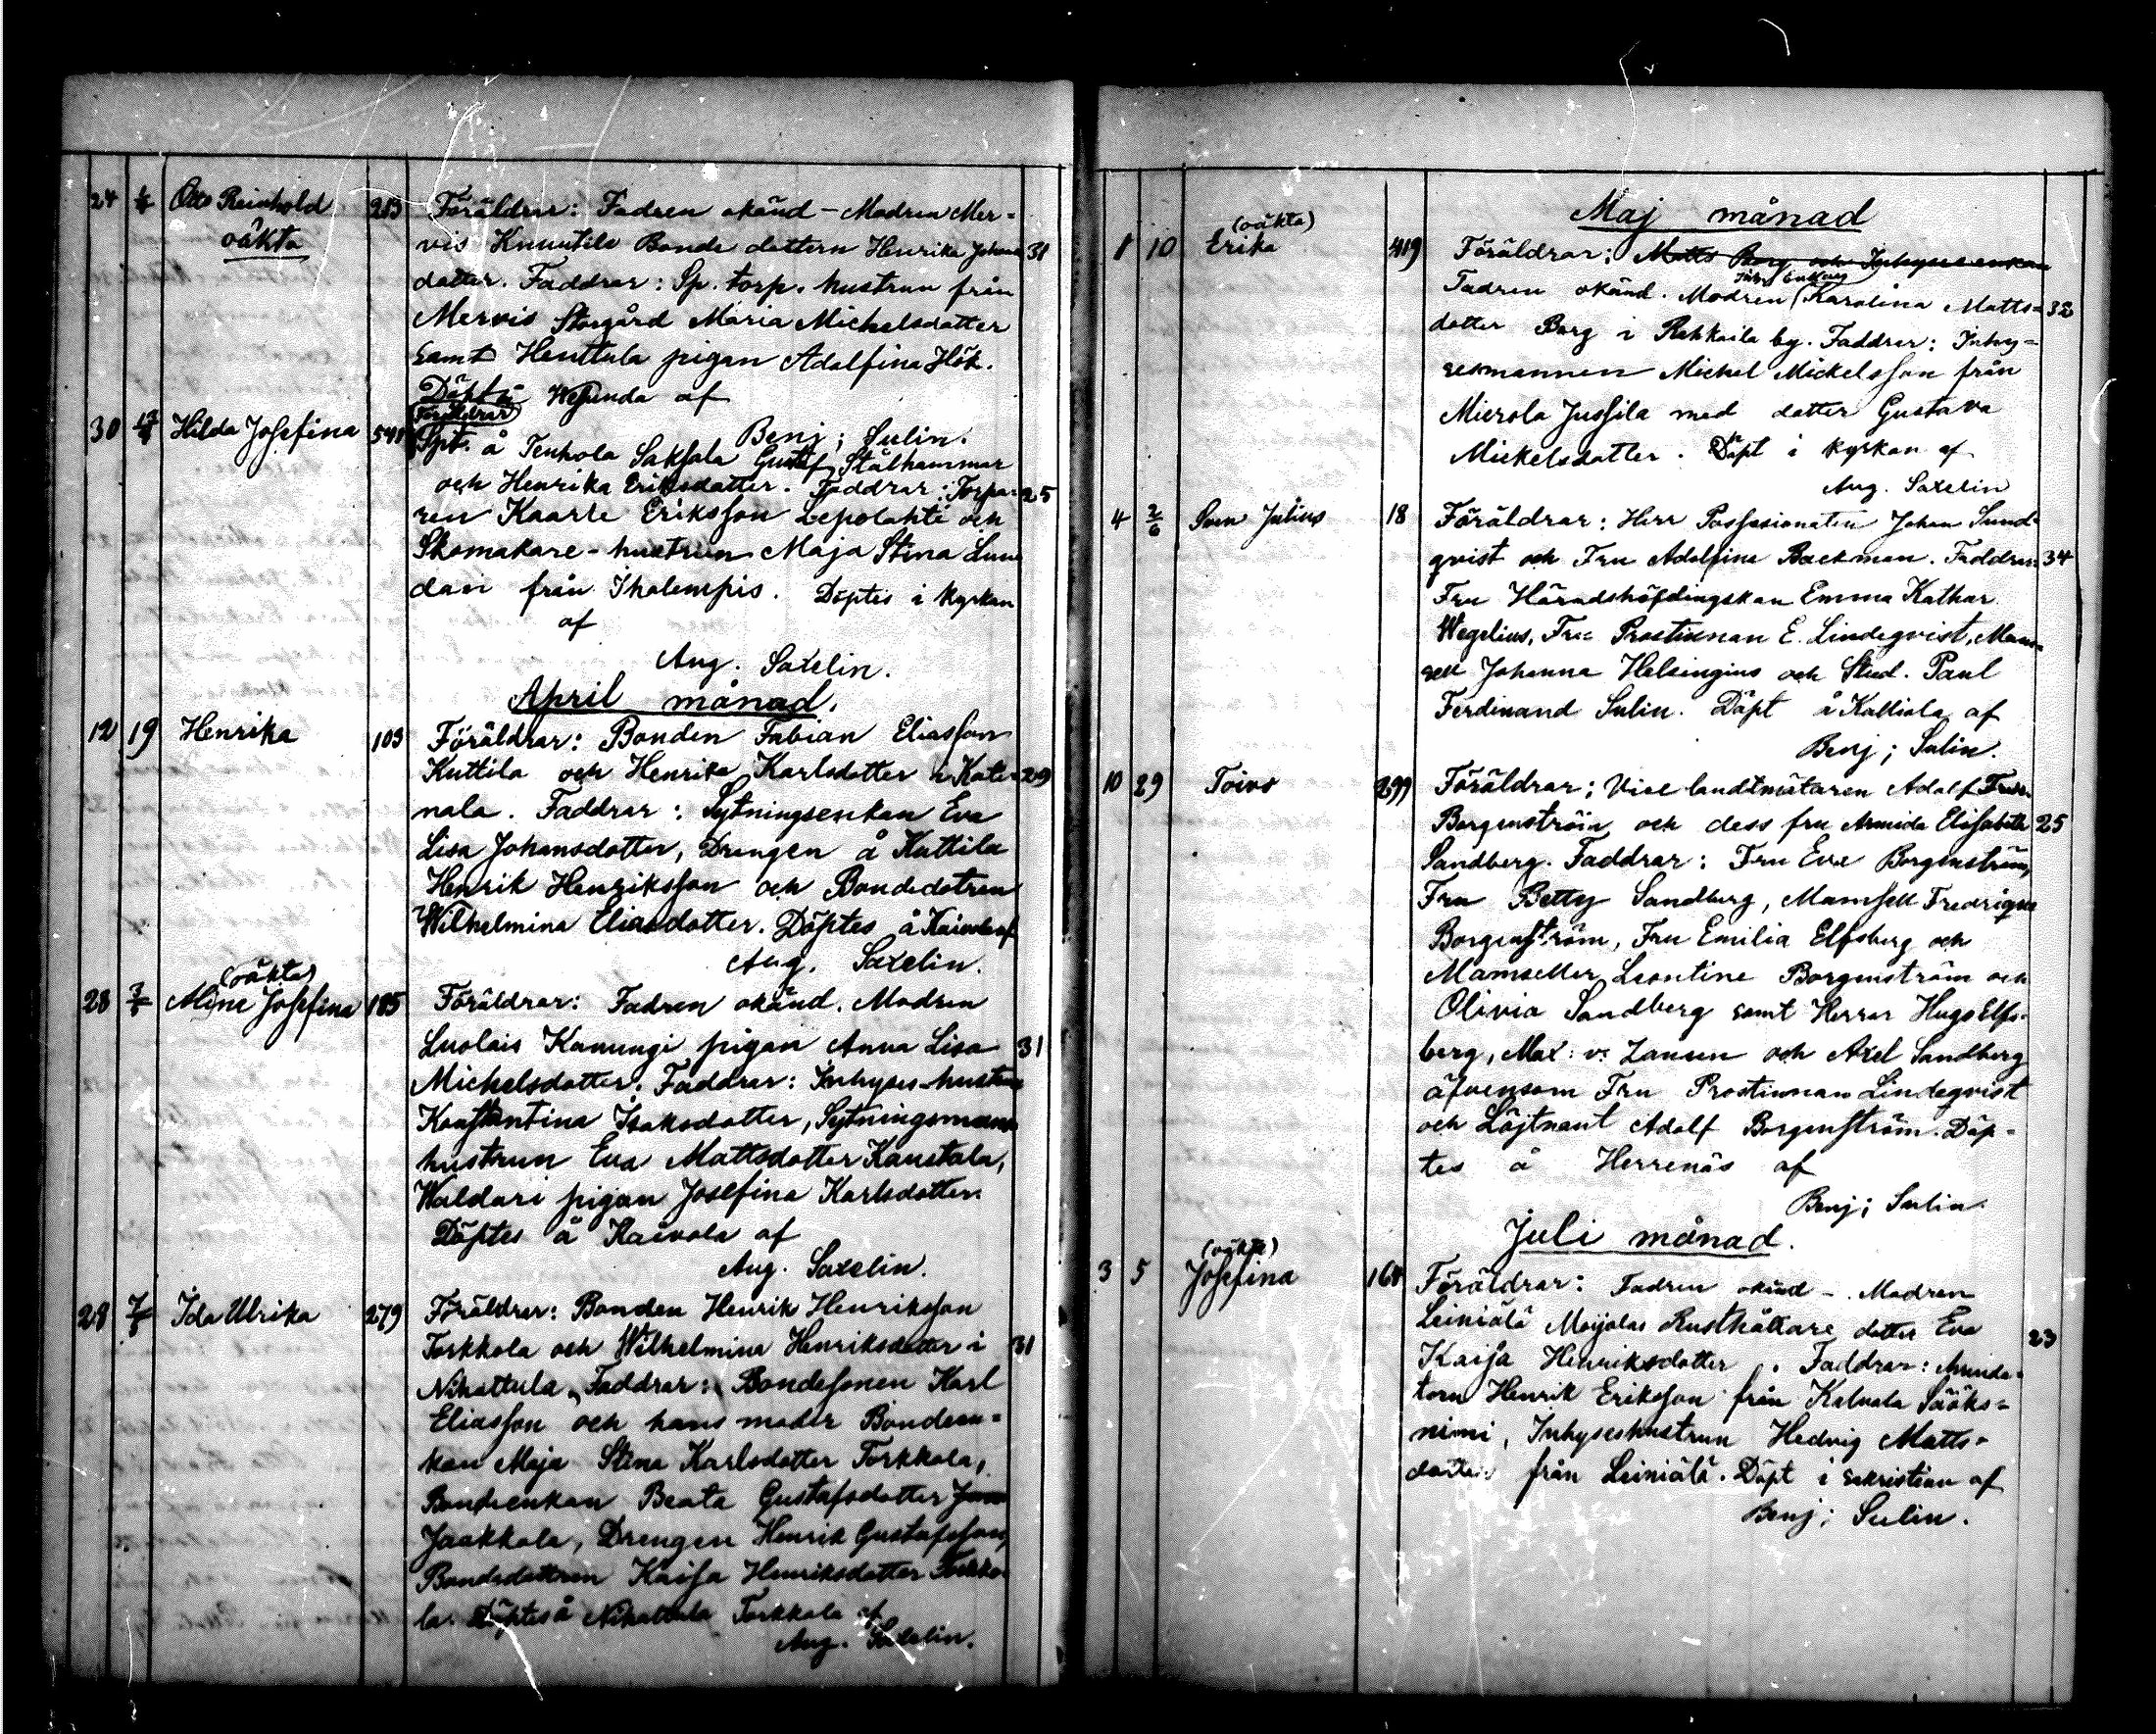 24 Otto Reinhold 213 Föräldrar: Fadren okänd - Modren Mer-
oäkta vis Knuutila Bonde dottern Henrika Johans 31
dotter. Faddrar: Sp. torp. hustrun från
Mervis Storgård Maria Michelsdotter
samt Henttula pigan Adolfina Hök.
Döpt i Wesunda af
Benj; Sulin.
Föräldrar
30 Hilda Josefina 541 Spit. å Tenhola Saksala Gustf Stålhammar
och Henrika Eriksdotter. Faddrar: Torpa- 25
ren Kaarle Eriksson Lepolahti och
Skomakare-hustrun Maja Stina Lun
dan från Ihalempis. Döptes i Kyrkan
af
Aug. Saxelin.
April månad.
12 19 Henrika 103 Föräldrar: Bonden Fabian Eliasson
Kuttila och Henrika Karlsdotter i Kati- 29
nala. Faddrar: Sytningsenkan Eva
Lisa Johansdotter, Drengen å Kuttila
Henrik Henriksson och Bondedotren
Wilhelmina Eliasdotter. Döptes å Kaivola af
Aug. Saxelin.
(oäkta)
28 Aline Josefina 185 Föräldrar: Fadren okänd. Modren
Luolais Kanungi pigan Anna Lisa 31
Michelsdotter. Faddrar: Inhyses-hustru
Konstantina Isaksdotter, Sytningsmans
hustrun Eva Mattsdotter Kanstala,
Waldari pigan Josefina Karlsdotter.
Döptes å Kaivola af
Aug. Saxelin.
28 Ida Ulrika 279 Föräldrar: Bonden Henrik Henriksson
Torkkola och Wilhelmina Henriksdotter i 31
Nihattula. Faddrar: Bondesonen Karl
Eliasson och hans moder Bonden-
kan Maja Stina Karlsdotter Torkkola,
Bondeenkan Beata Gustafsdotter
Jaakkola, Drengen Henrik Gustafsson,
Bondedottren Kaisa Henriksdotter Torkko-
la. Döptes å Nihattula Torkkola af
Aug. Saxelin.
Maj månad
(oäkta)
1 10 Erika 419 Föräldrar: Matts Borg och Inhyses enkan
Inhy Enkan
Fadren okänd. Modren Karolina Matts- 32
dotter Borg i Rekkoila by. Faddrar: Inhy-
sesmannen Michel Mickelsson från
Mierola Jussila med dotter Gustava
Mickelsdotter. Döpt i kyrkan af
Aug. Saxelin
4 2/6 Sven Julius 18 Föräldrar: Herr Possesionaten Johan Sund-
qvist och Fru Adolfina Backman. Faddrar: 34
Fru Häradshöfdingskan Emma Kathar.
Wegelius, Fru Prostinnan E. Lindeqvist, Mam-
sell Johanna Helsingius och Stud. Paul
Ferdinand Sulin. Döpt å Kalliola af
Benj; Sulin.
10 29 Toivo 299 Föräldrar; Vice landtmätaren Adolf Fredr.
Borgenström och dess fru Armida Elisabeth 25
Sandberg. Faddrar: Fru Eva Borgenström,
Fru Betty Sandberg, Mamsell Fredrique
Borgenström, Fru Emilia Elfsberg och
Mamseller Leontine Borgenström och
Olivia Sandberg samt Herrar Hugo Elfs-
berg, Max: v. Zansen och Axel Sandberg
äfvensom Fru Prostinnan Lindeqvist
och Löjtnant Adolf Borgenström. Döp-
tes å Herrenäs af
Benj; Sulin.
Juli månad.
(oäkta)
3 5 Josefina 168 Föräldrar: Fadren okänd -. Modren
Leiniälä Moijolas Rusthållare dotter Eva 23
Kaisa Henriksdotter. Faddrar: Arrenda-
torn Henrik Eriksson från Kalvola Sääks-
niemi, Inhyseshustrun Hedvig Matts-
dotter från Leiniälä. Döpt i sakristian af
Benj; Sulin.